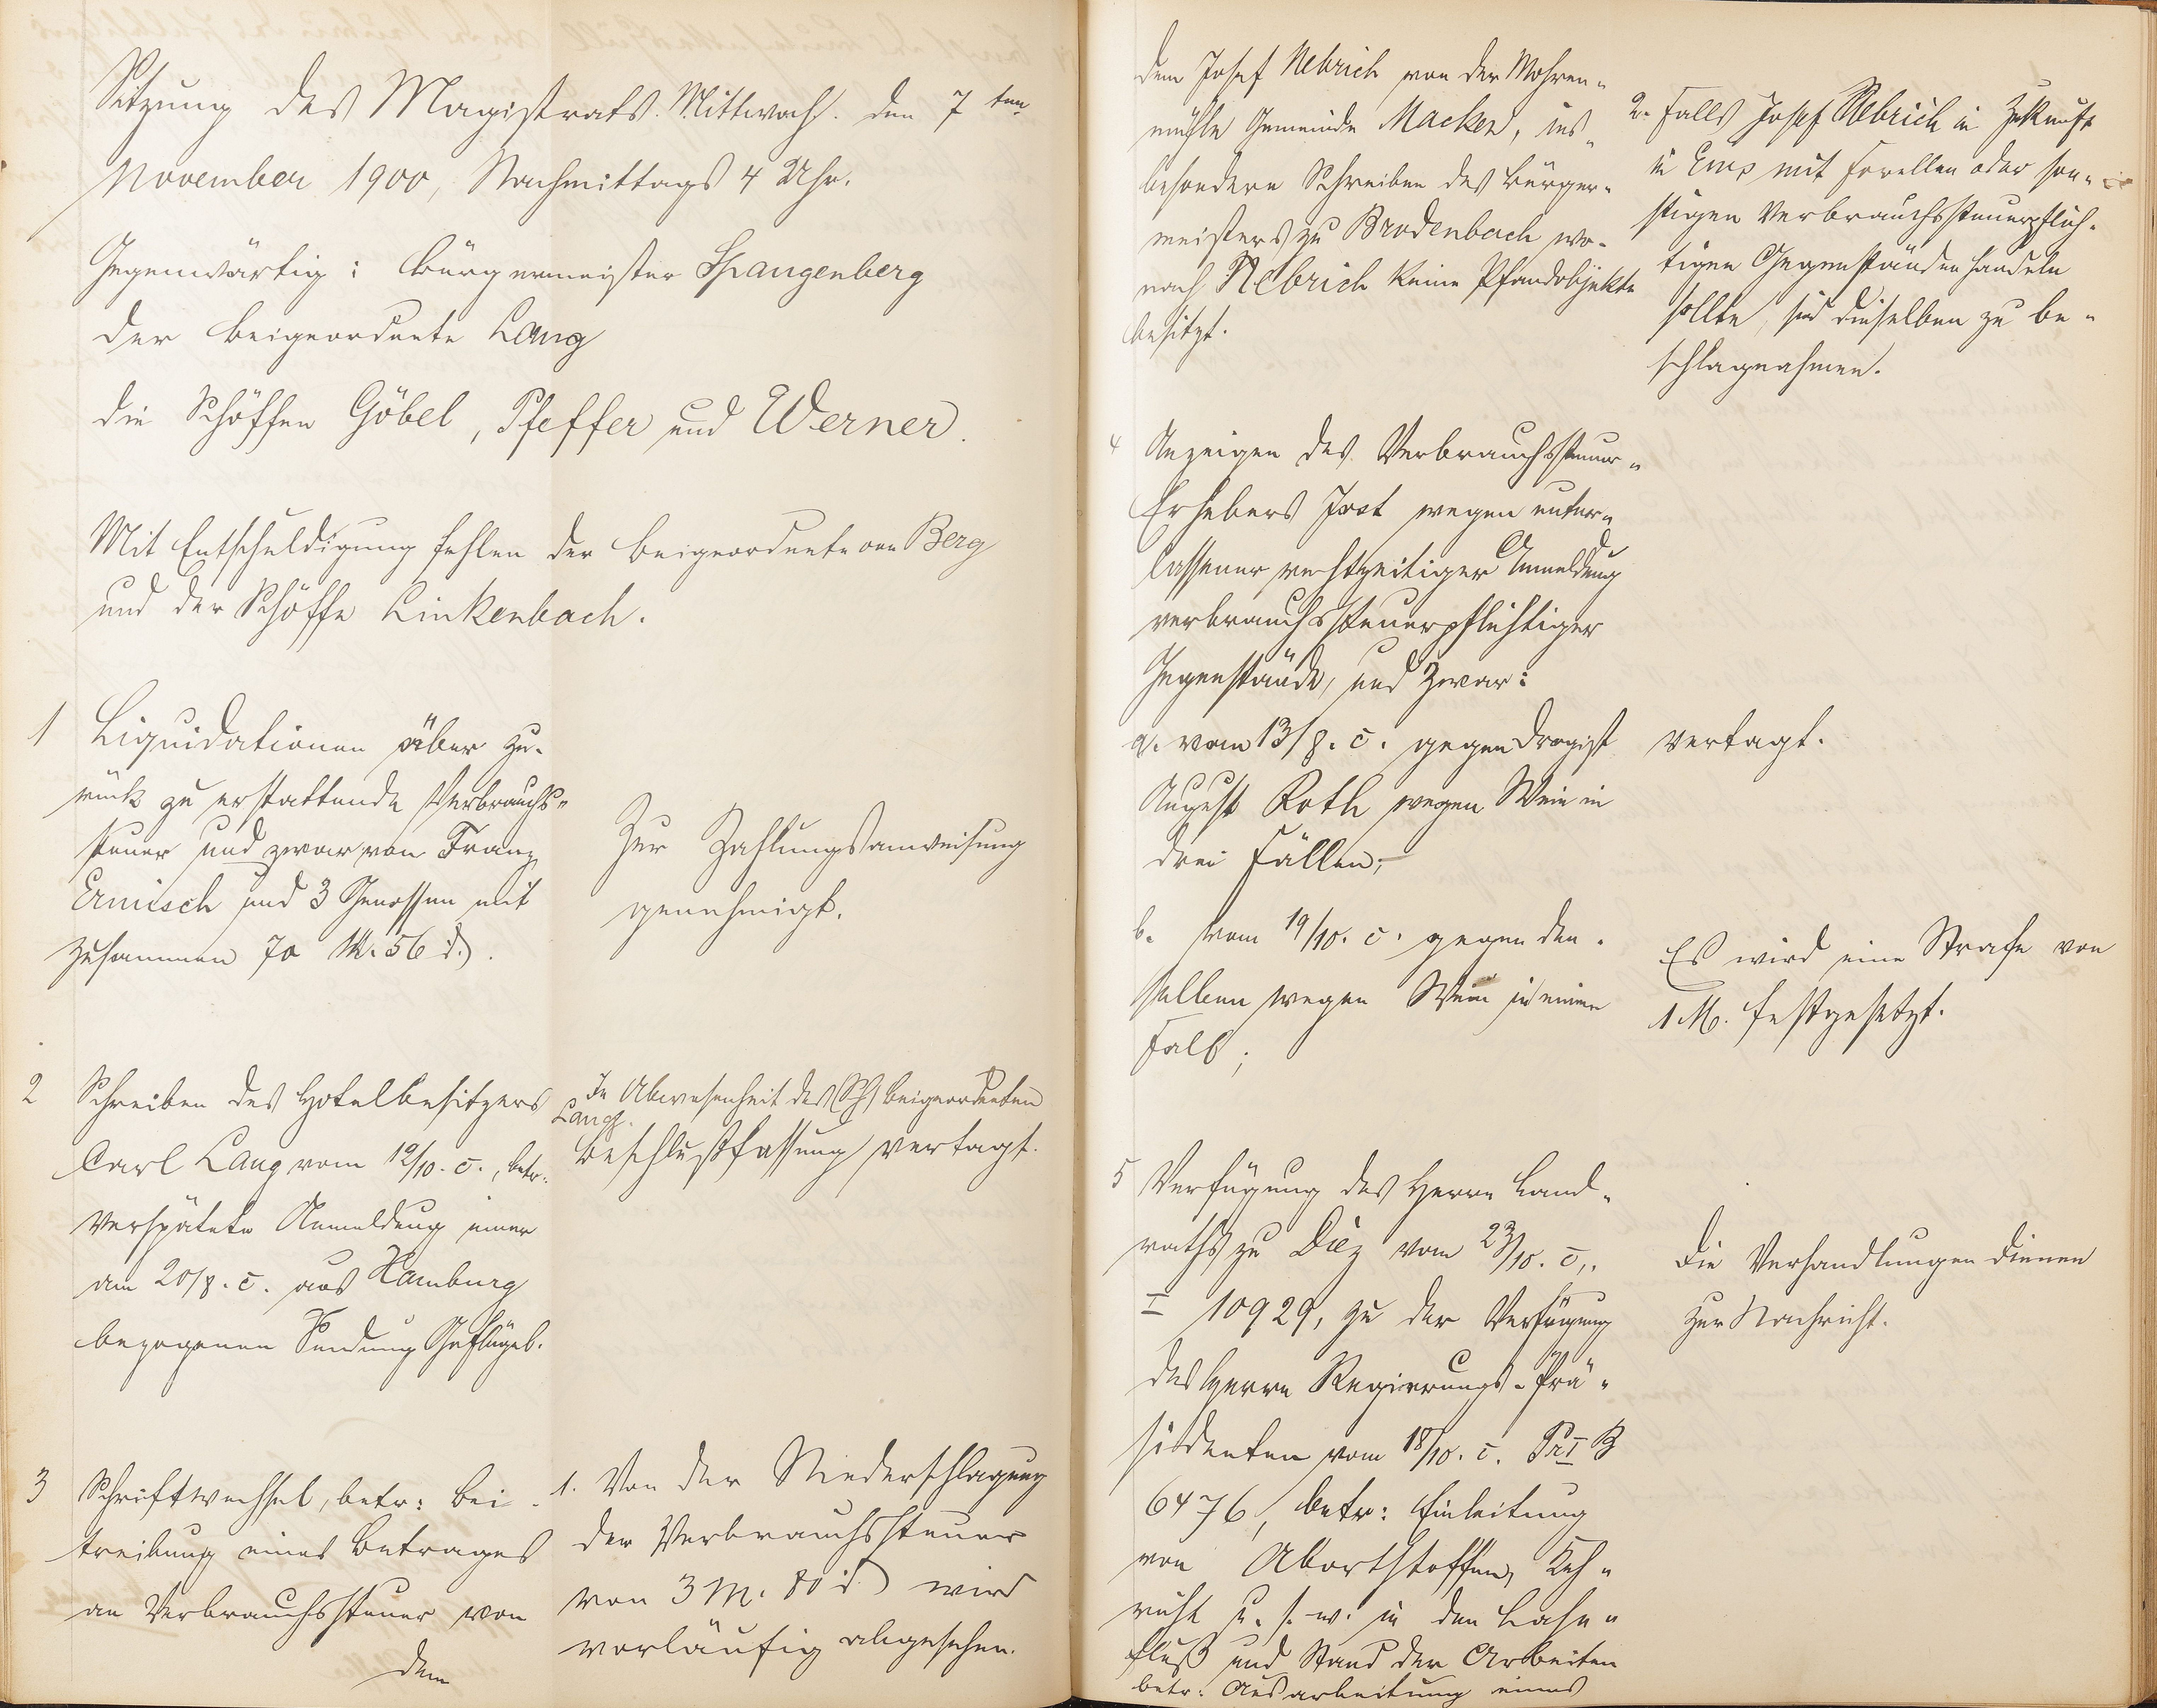 Sitzung des Magistrats. Mittwoch. den 7ten
November 1900, Nachmittags 4 Uhr.
Gegenwärtig: Bürgermeister Spangenberg
der Beigeordnete Lang
die Schöffen Göbel, Pfeffer und Werner.
Mit Entschuldigung fehlen der Beigeordnete von Berg
und der Schöffe Linkenbach.
1 Liquidationen über zu-
rück zu erstattende Verbrauchs-
steuer und zwar von Franz
Ermisch und 3 Genossen mit
zusammen 70 M. 56 d.
Zur Zahlungsanweisung
genehmigt.
2 Schreiben des Hotelbesitzers
Carl Lang vom 12/10. c., betr:
verspätete Anmeldung einer
am 20/8. c. aus Hamburg
bezogenen Sendung Geflügel.
In Abwesenheit des Beigeordneten
Lang.
Beschlußfassung vertagt.
3 Schriftwechsel, betr: Bei-
treibung eines Betrages
an Verbrauchssteuer von
dem
1. Von der Niederschlagung
der Verbrauchssteuer
von 3 M. 80 d wird
vorläufig abgesehen.
dem Josef Nebrich von der Mohren-
mühle Gemeinde Macken, ins-
besondere Schreiben des Bürger-
meisters zu Brodenbach wo-
nach Nebrich keine Pfandobjekte
besitzt.
2. Falls Josef Nebrich in Zukunft
in Ems mit Forellen oder son-
stigen Verbrauchssteuerpflich-
tigen Gegenständen handeln
sollte, sind dieselben zu be-
schlagnahmen.
4 Anzeigen des Verbrauchssteuer-
Erhebers Jost wegen unter-
lassener rechtzeitiger Anmeldung
verbrauchssteuerpflichtiger
Gegenstände, und zwar:
a. vom 13/8. c. gegen Drogist
August Roth wegen Wein in
drei Fällen;
vertagt.
b. vom 19/10. c. gegen den-
selben wegen Wein in einem
Fall;
Es wird eine Strafe von
1 M. festgesetzt.
5 Verfügung des Herrn Land-
raths zu Diez vom 23/10. c.,
I 10929, zu der Verfügung
des Herrn Regierungs-Prä-
sidenten vom 18/10. c. Pr I B
6476, betr: Einleitung
von Abortstoffen, Keh-
richt u. s. w. in den Lahn-
fluß und Stand der Arbeiten
betr: Ausarbeitung eines
Die Verhandlungen dienen
zur Nachricht.